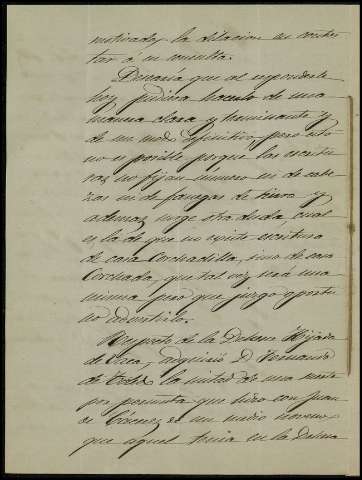 motivado, la dilacion en contes
tar á su consulta.
Desearía que al responderle
hoy pudiera hacerlo de una
manera clara y terminante y
de un modo definitivo, pero esto
no es posible porque las escritu
ras no fijan número ni de cabe
zas ni de fanegas de tierra y
ademas surge otra duda, cual
es la de que no existe escritura
de casa Corchadilla, sino de casa
Corchada, que tal vez sea una
misma pero que juzgo oportu
no advertirlo.
Respecto de la Dehesa Hijada
de Vaca, adquirió Dn Fernando
de la mitad de una
por permuta que hizo con Juan
de Cáceres es un medio noveno
que aquel tenia en la Dehesa